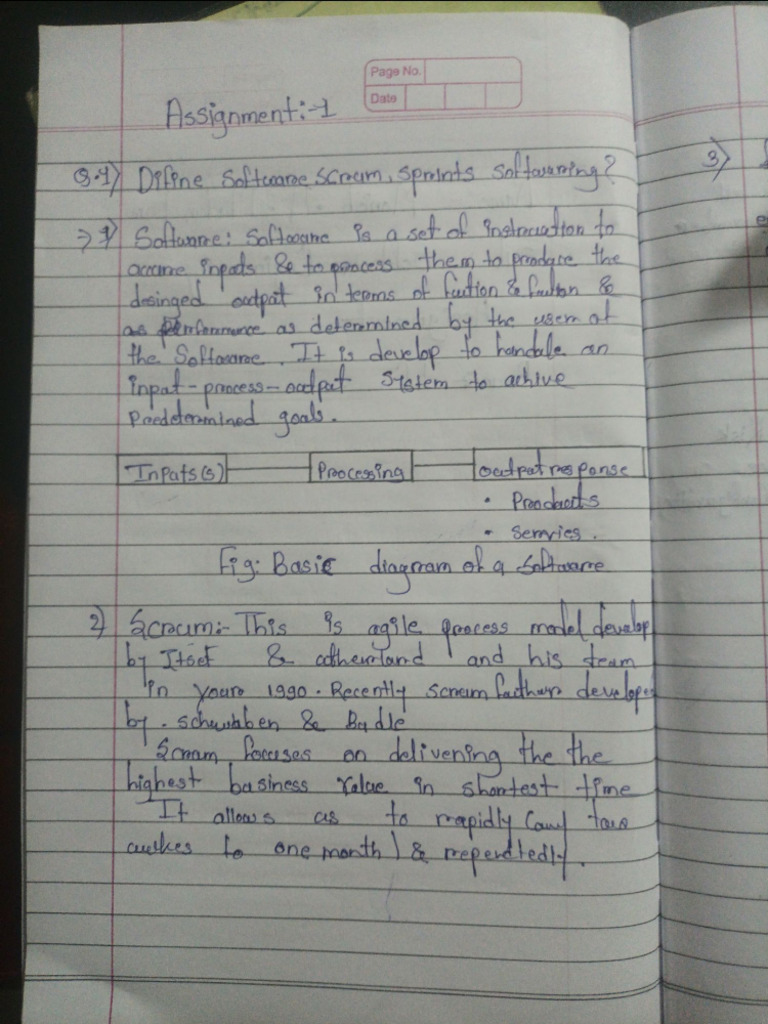 Page No.
Date
Assignment:-1
Q.1) Difine Software, scrum, sprints softwaring?
→ 1) Software: Software is a set of instrucation to
accure inputs & to process them to produce the
desinged output in terms of & &
as performance as determined by the user of
the Software. It is develop to handale an
input-process-output system to achive
Predetermined goals.
Inputs(s) Processing output response
• Products
• servies.
Fig: Basic diagram of a Software
2) Scrum:- This is agile process model develop
by & and his team
in years 1990. Recently scrum develope
by. schwabben & Badle
Scrum focuses on delivering the the
highest business value in shortest time
It allows us to rapidly
to one month) &
3)